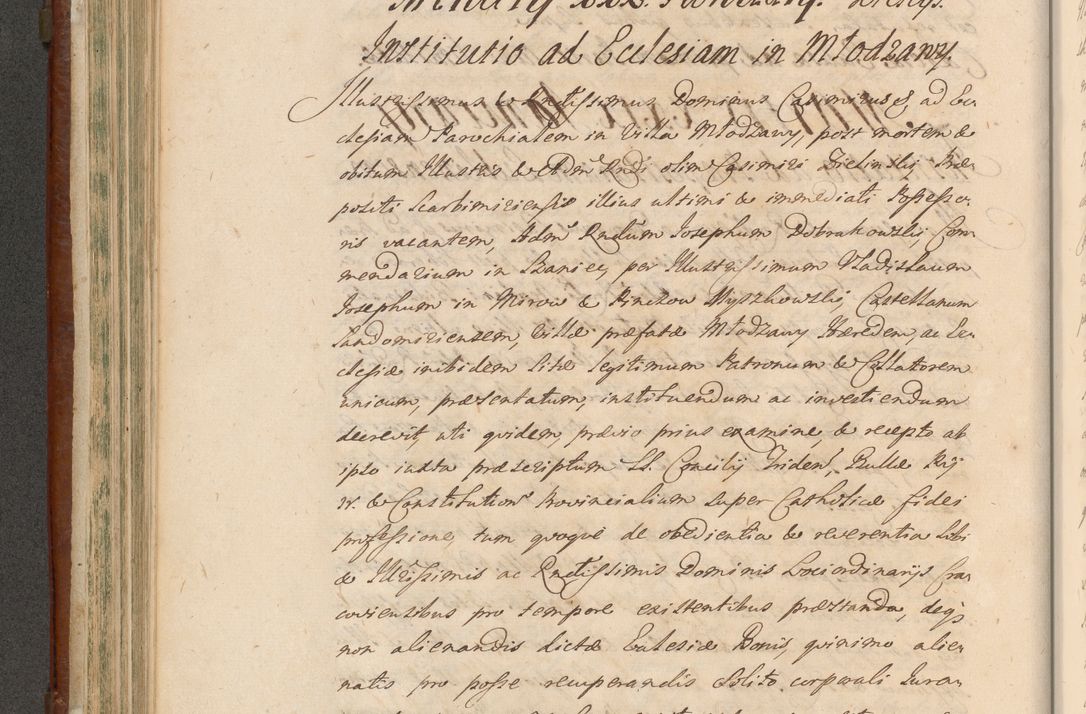 Institutio ad Ecclesiam in Młodzawy.
Illustrissimus & Rndissimus Dominus Casimirus &, ad Ec-
clesiam Parochialem in Villa Młodzawy, post mortem &
obitum Illustris & Adm Rndi olim Casimiri Zielinski, Præ-
positi Scarbimiriensis illius ultimi & immediati Possesso-
ris vacantem, Adm Rndum Josephum Dobrakowski, Com-
mendarium in Szaniec, per Illustrissimum Vladislaum
Josephum in Mirow & Pinczow Myszkowski, Castellanum
Sandomiriensem, Villæ præfatæ Młodzawy Hæredem, ac Ec-
clesiæ inibidem sitæ legitimum Patronum & Collatorem
unicum, præsentatum, instituendum ac investiendum
decrevit, uti quidem, prævio prius examine, & recepta ab
ipso iuxta præscriptum SS. Concilij Triden, Bullæ Pij
IV. & Constitution Provincialium super Catholicæ fidei
professione, tum quoque de obedientia & reverentia sibi
& Illrissimis ac Rndissimis Dominis Lociordinarijs Cra-
coviensibus pro tempore existentibus præstanda, deqj
non alienandis dictæ Ecclesiæ Bonis, quinimo alie-
natis pro posse recuperandis solito corporali Jura-